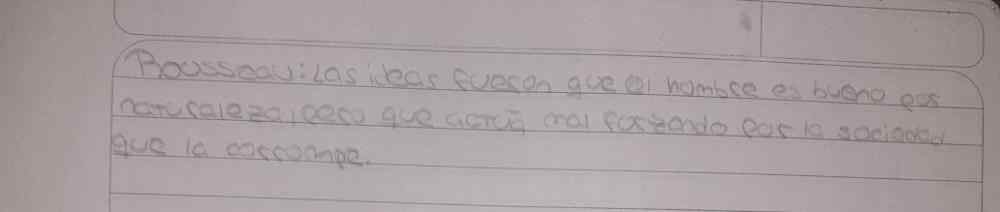 Rousseau: Las ideas fueron que el hombre es bueno por
naturaleza, pero que actúa mal forzando por la sociedad
que lo corrompe.